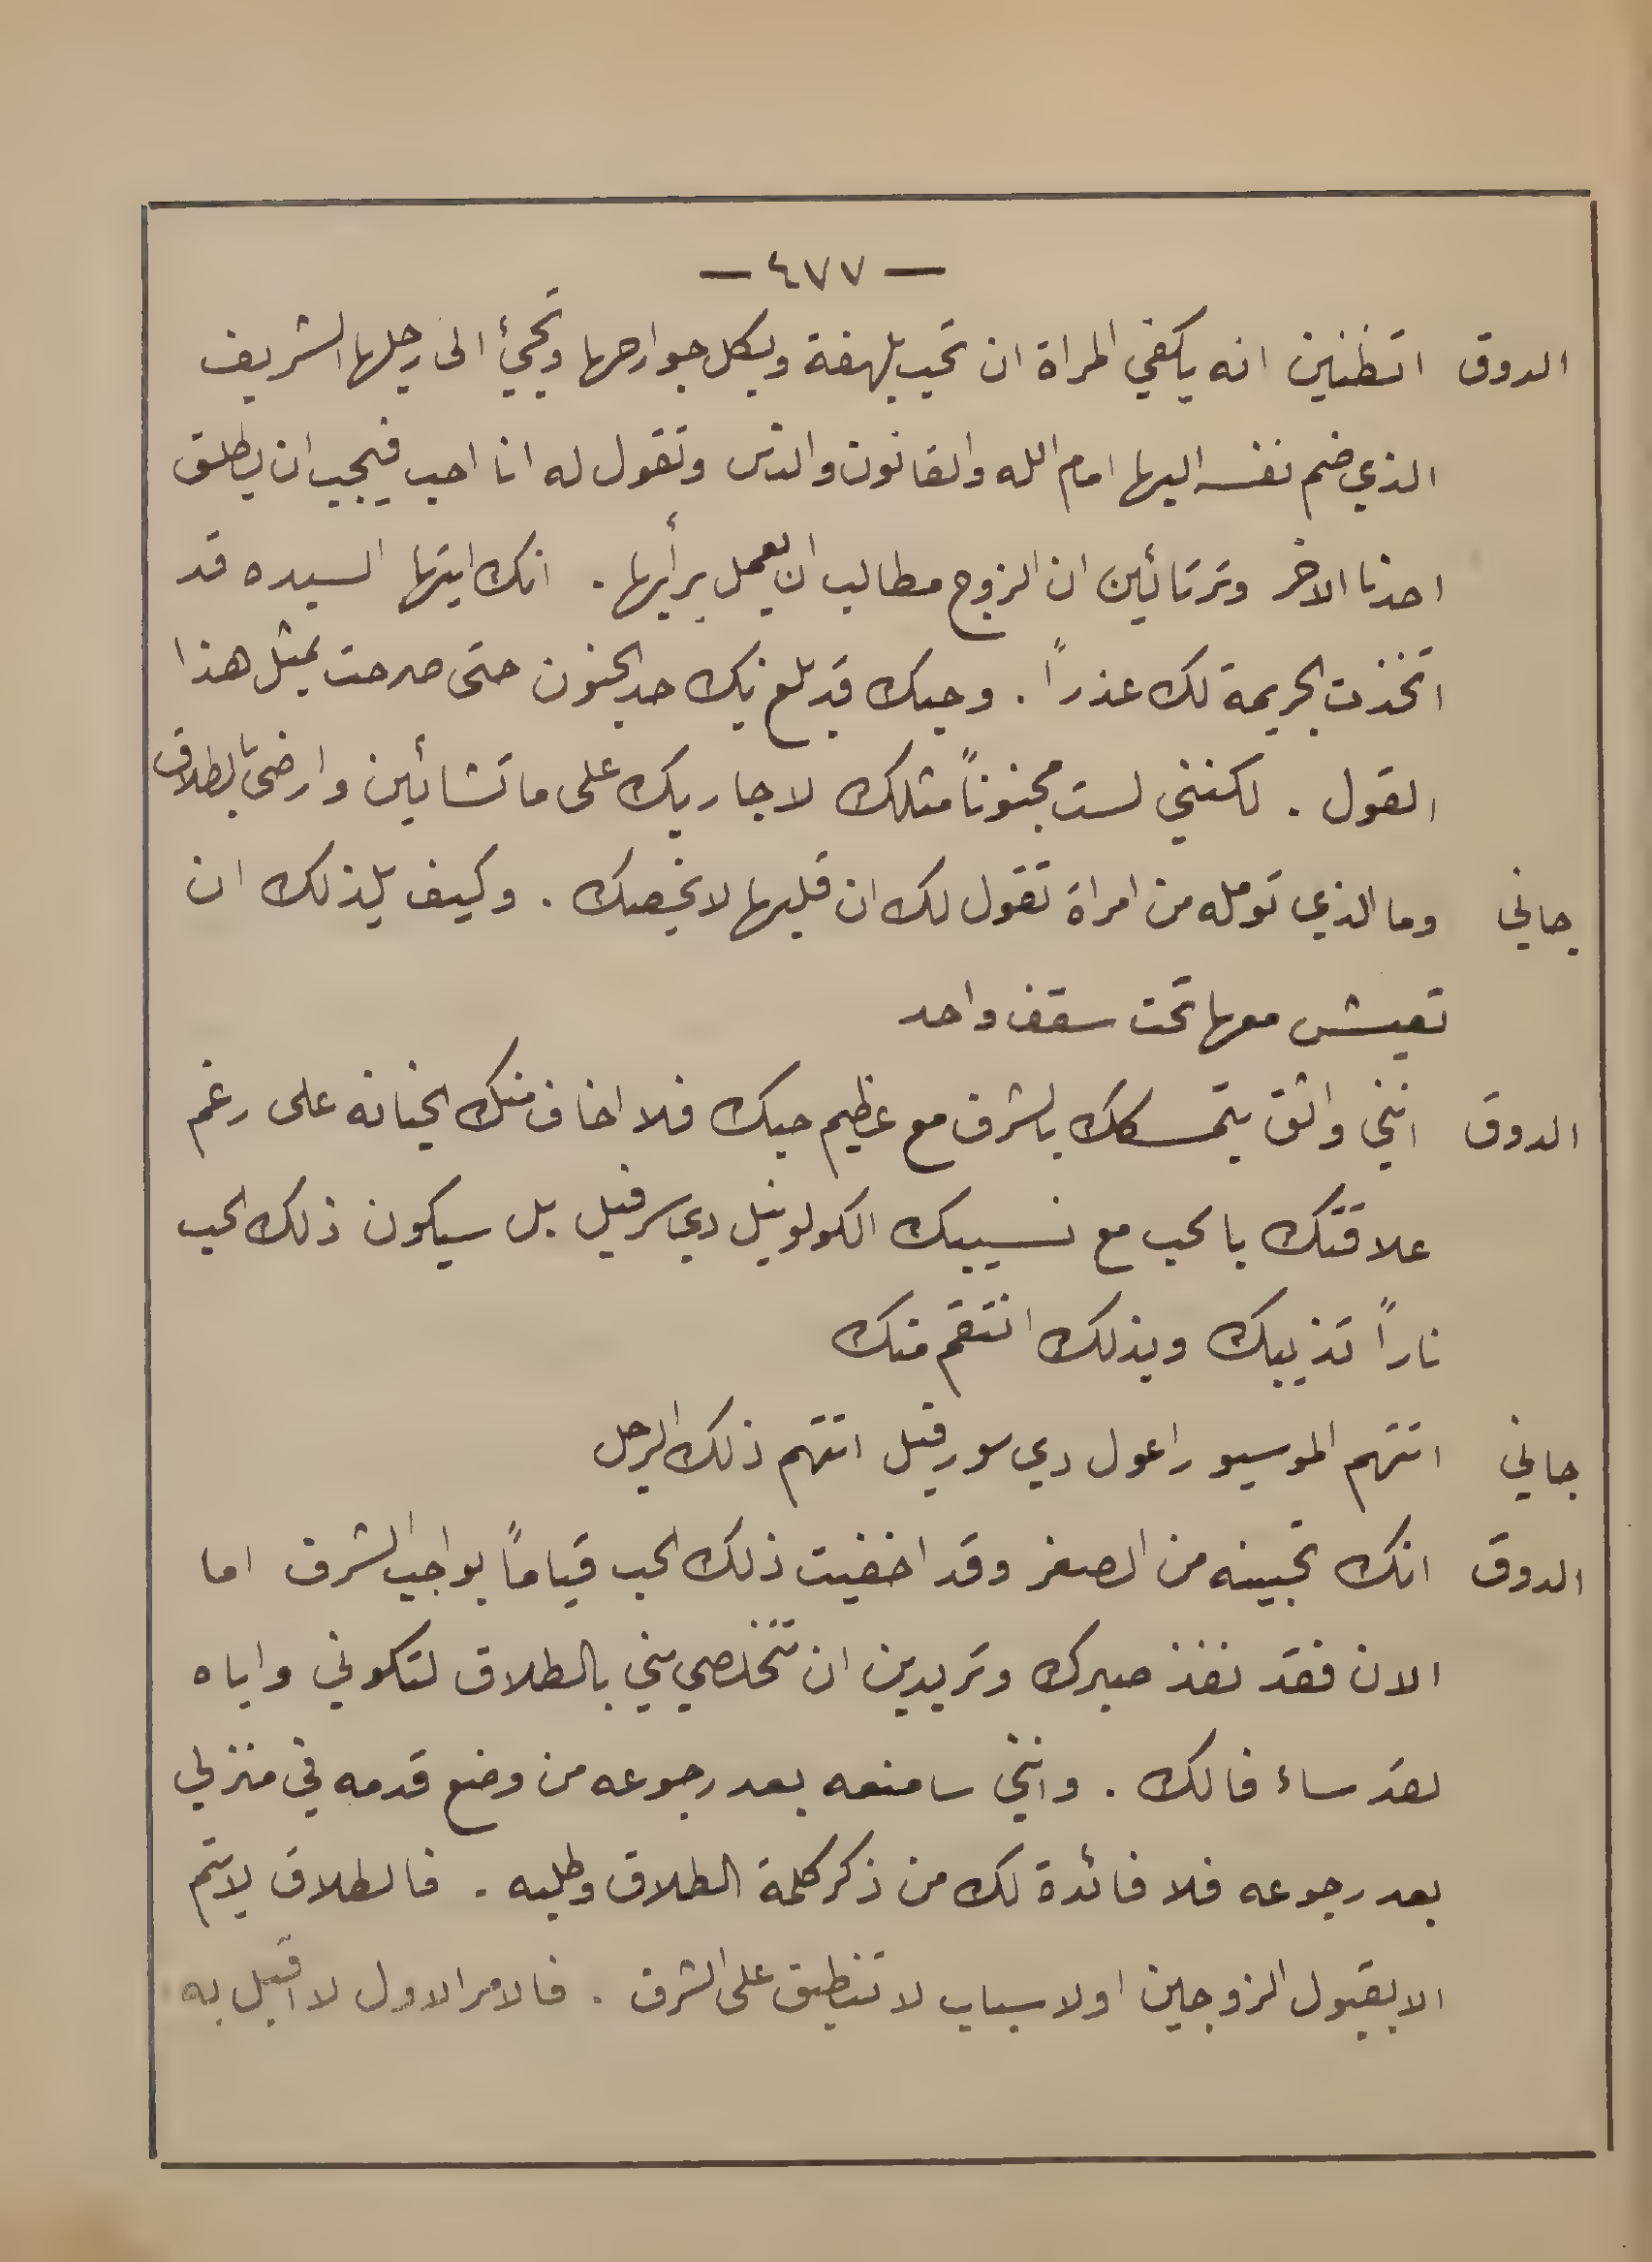 — ٤٧٧ —
الدوق اتظنين انه يكفي المراة ان تحب بلهفة وبكل جوارحها وتجيئ الى رجلها الشريف
الذي ضم نفسه اليها امام الله والقانون والناس وتقول له انا احب فيجب ان يطلق
احدنا الاخر وترتائين ان الزوج مطالب ان يعمل برأيها . انك ايتها السيده قد
اتخذت الجريمة لك عذراً . وحبك قد بلغ بك حد الجنون حتى صرحت بمثل هذا
القول . لكنني لست مجنوناً مثلك لاجاريك على ما تشائين وارضى بالطلاق
جاني وما الذي تومله من امراة تقول لك ان قلبها لا يخصك . وكيف يلذ لك ان
تعيش معها تحت سقف واحد
الدوق انني واثق بتمسكك بالشرف مع عظيم حبك فلا اخاف منك الخيانه على رغم
علاقتك بالحب مع نسيبك الكولونيل دي سرفيل بل سيكون ذلك الحب
ناراً تذيبك وبذلك انتقم منك
جاني اتتهم الموسيو راعول دي سورفيل اتتهم ذلك الرجل
الدوق انك تحبينه من الصغر وقد اخفيت ذلك الحب قياماً بواجب الشرف اما
الان فقد نفذ صبرك وتريدين ان تتخلصي مني بالطلاق لتكوني واياه
لقد ساء فالك . وانني سامنعه بعد رجوعه من وضع قدمه في منزلي
بعد رجوعه فلا فائدة لك من ذكر كلمة الطلاق وطلبه . فالطلاق لا يتم
الا بقبول الزوجين اولاسباب لا تنطبق على الشرف . فالامر الاول لا اقبل به